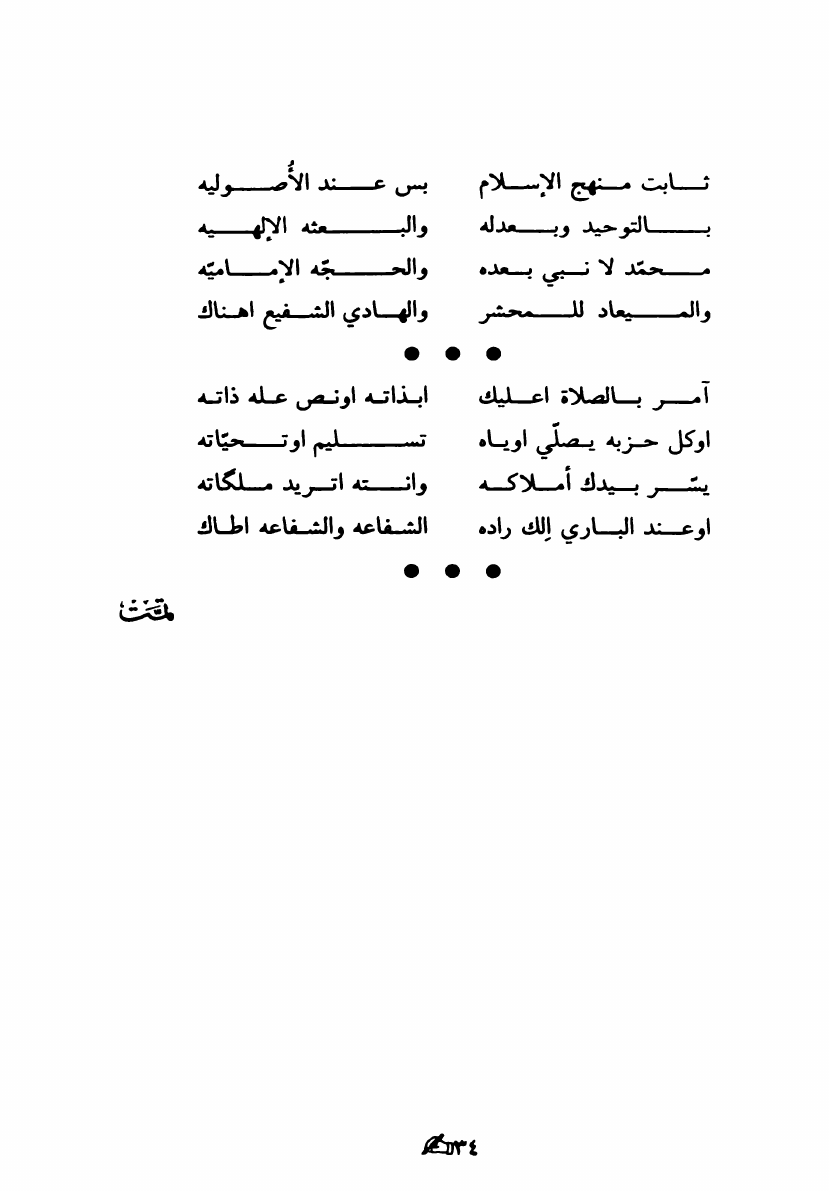 ثابت منهج الإسلام بس عند الأُصوليه
بالتوحيد وبعدله والبعثه الإلهيه
محمّد لا نبي بعده والحجّه الإماميّه
والميعاد للمحشر والهادي الشفيع اهناك
● ● ●
آمر بالصلاة اعليك ابذاته اونص عله ذاته
اوكل حزبه يصلّي اوياه تسليم اوتحيّاته
يسّر بيدك أملاكه وانته اتريد ملگاته
اوعند الباري إلك راده الشفاعه والشفاعه اطاك
● ● ●
تمّت
٣٤